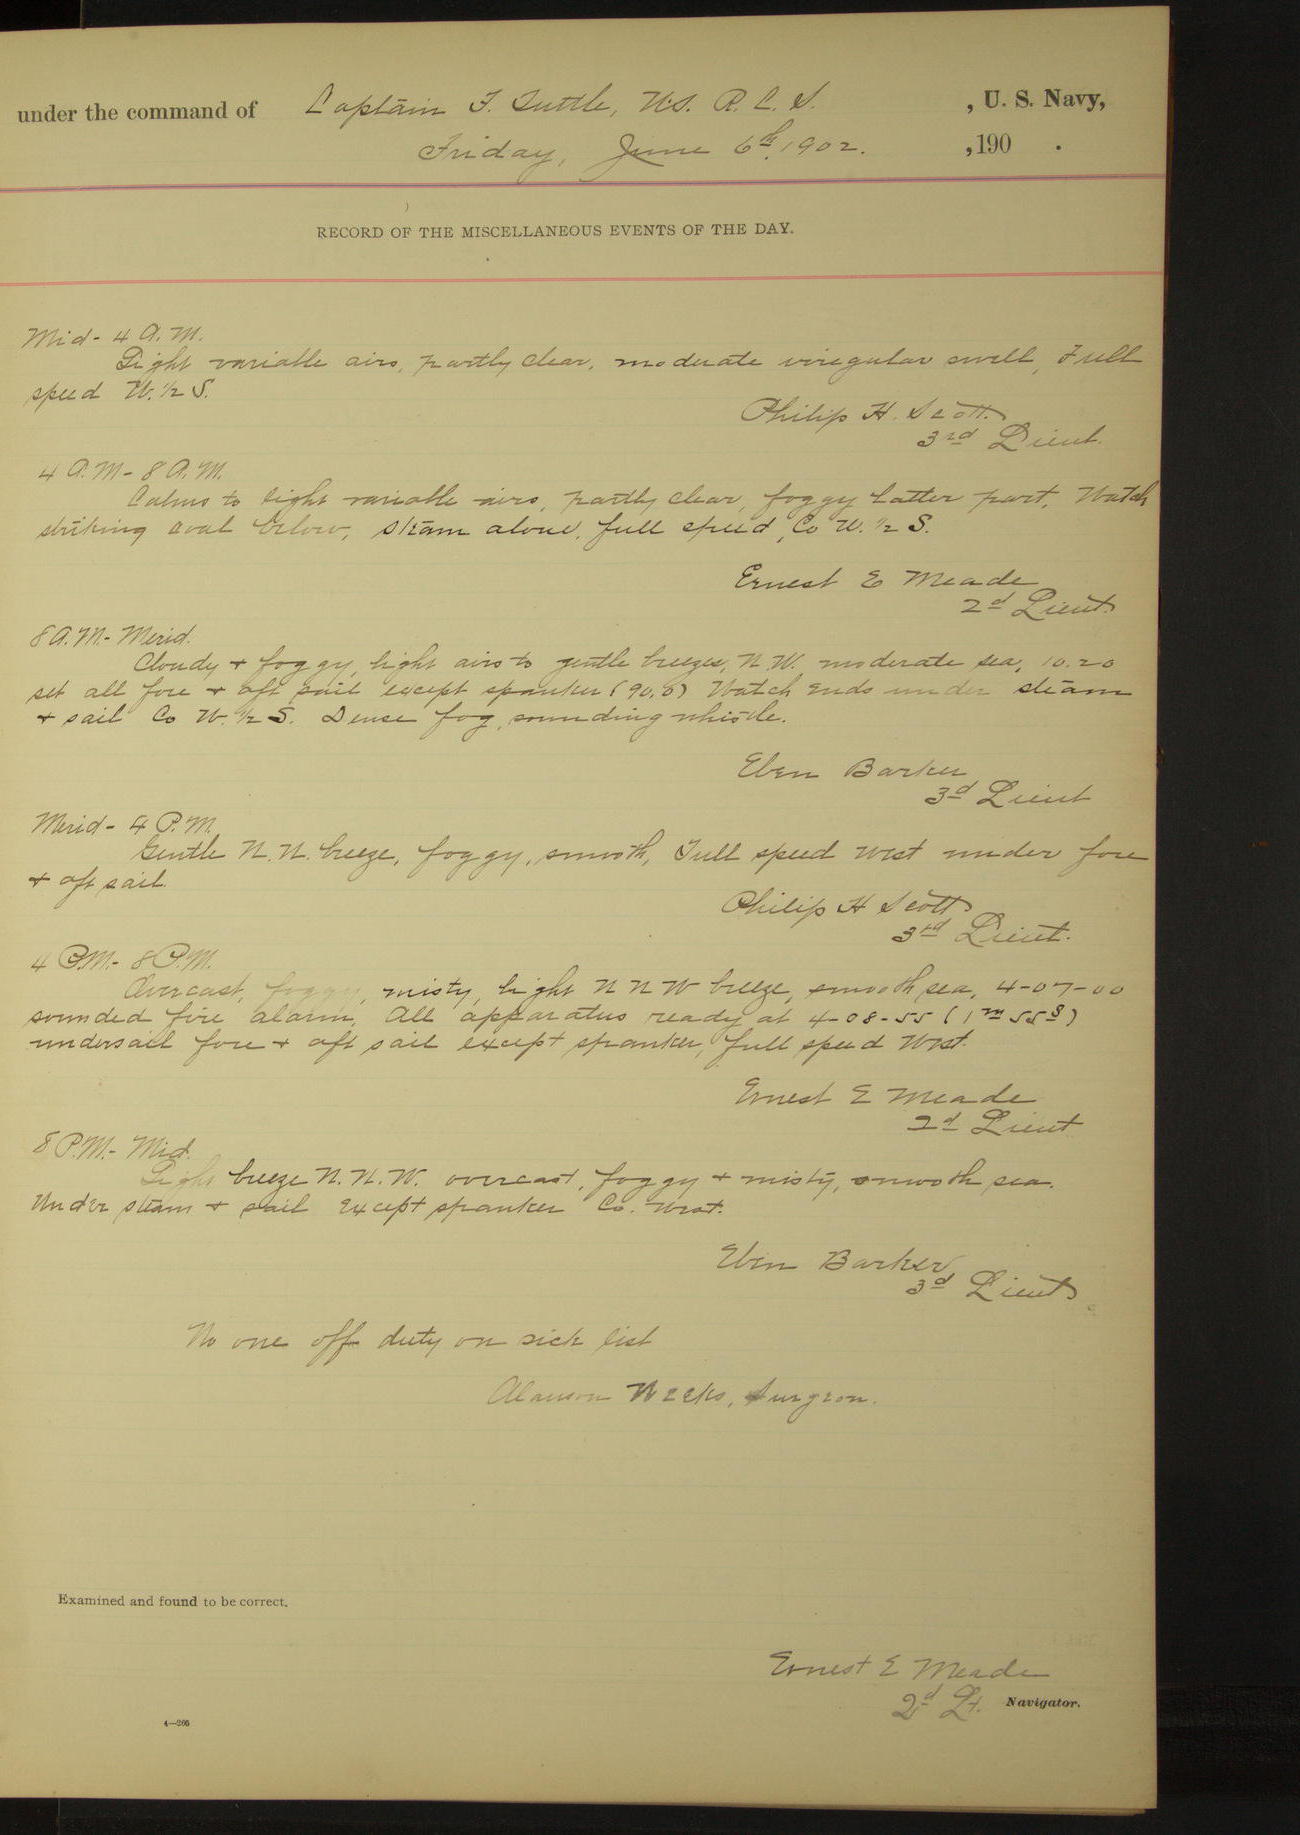 under the command of Captain F. Tuttle, U.S. R. C. S. , U. S. Navy,
Friday, June 6th, 1902. ,190 .
RECORD OF THE MISCELLANEOUS EVENTS OF THE DAY.
Mid- 4 A.M.
Light variable airs, partly clear, moderate irregular swell, Full
speed W. 1/2 S.
Philip H. Scott.
3rd Lieut.
4 A.M- 8 A.M.
Calms to light variable airs, partly clear, foggy latter part, Watch
striking coal below, steam alone, full speed, Co W. 1/2 S.
Ernest E Meade
2d Lieut.
8 A.M.- Merid.
Cloudy + foggy, light airs to gentle breezes, N.W. moderate sea, 10.20
set all fore + aft sail except spanker (90.0) Watch ends under steam
+ sail Co W. 1/2 S. Dense fog, sounding whistle.
Eben Barker
3d Lieut
Merid- 4 P.M.
Gentle N.N. breeze, foggy, smooth, Full speed West under fore
+ aft sail.
Philip H Scott
3rd Lieut.
4 P.M.- 8 P.M.
Overcast, foggy, misty, light N N W breeze, smooth sea, 4-07-00
sounded fire alarm, All apparatus ready at 4-08-55 (1m 55s)
undersail fore + aft sail except spanker, full speed West.
Ernest E Meade
2d Lieut
8 P.M.- Mid.
Light breeze N.N.W. overcast, foggy + misty, smooth sea.
Under steam + sail Except spanker Co. West.
Eben Barker,
3d Lieut
No one off duty on sick list
Alanson Weeks, Surgeon.
Examined and found to be correct.
Ernest E Meade
2d Lt. Navigator.
4—266